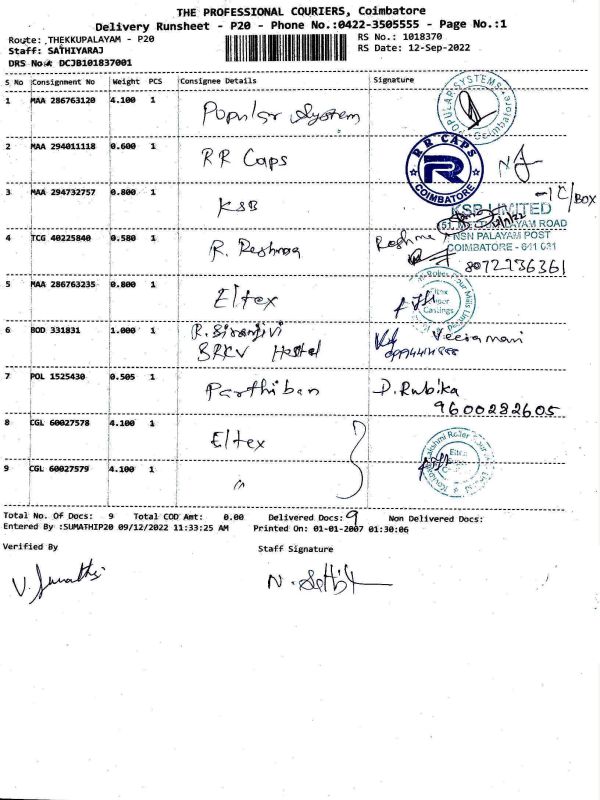 THE PROFESSIONAL COURIERS, Coimbatore
Delivery Runsheet - P20 - Phone No.:0422-3505555 - Page No.:1
Route: THEKKUPALAYAM - P20 RS No.: 1018370
Staff: SATHIYARAJ RS Date: 12-Sep-2022
DRS No: DCJB101837001
S No Consignment No Weight PCS Consignee Details Signature
1 MAA 286763120 4.100 1 Popular System
POPULAR SYSTEMS Coimbatore
2 MAA 294011118 0.600 1 RR Caps
RR CAPS R COIMBATORE
3 MAA 294732757 0.800 1 KSB
-1 C/BOX
KSB LIMITED
PALAYAM ROAD
NSN PALAYAM POST
COIMBATORE - 641 031
4 TCG 40225840 0.580 1 R. Reshma Reshma
8072236361
5 MAA 286763235 0.800 1 Eltex
6 BOD 331831 1.000 1 R. Siranjivi
BRKV Hostel Veeramani
7 POL 1525430 0.505 1 Parthiban D. Rubika
9600282605
8 CGL 60027578 4.100 1 Eltex
9 CGL 60027579 4.100 1 "
Total No. Of Docs: 9 Total COD Amt: 0.00 Delivered Docs: 9 Non Delivered Docs:
Entered By :SUMATHIP20 09/12/2022 11:33:25 AM Printed On: 01-01-2007 01:30:06
Verified By Staff Signature
V. Sumathi